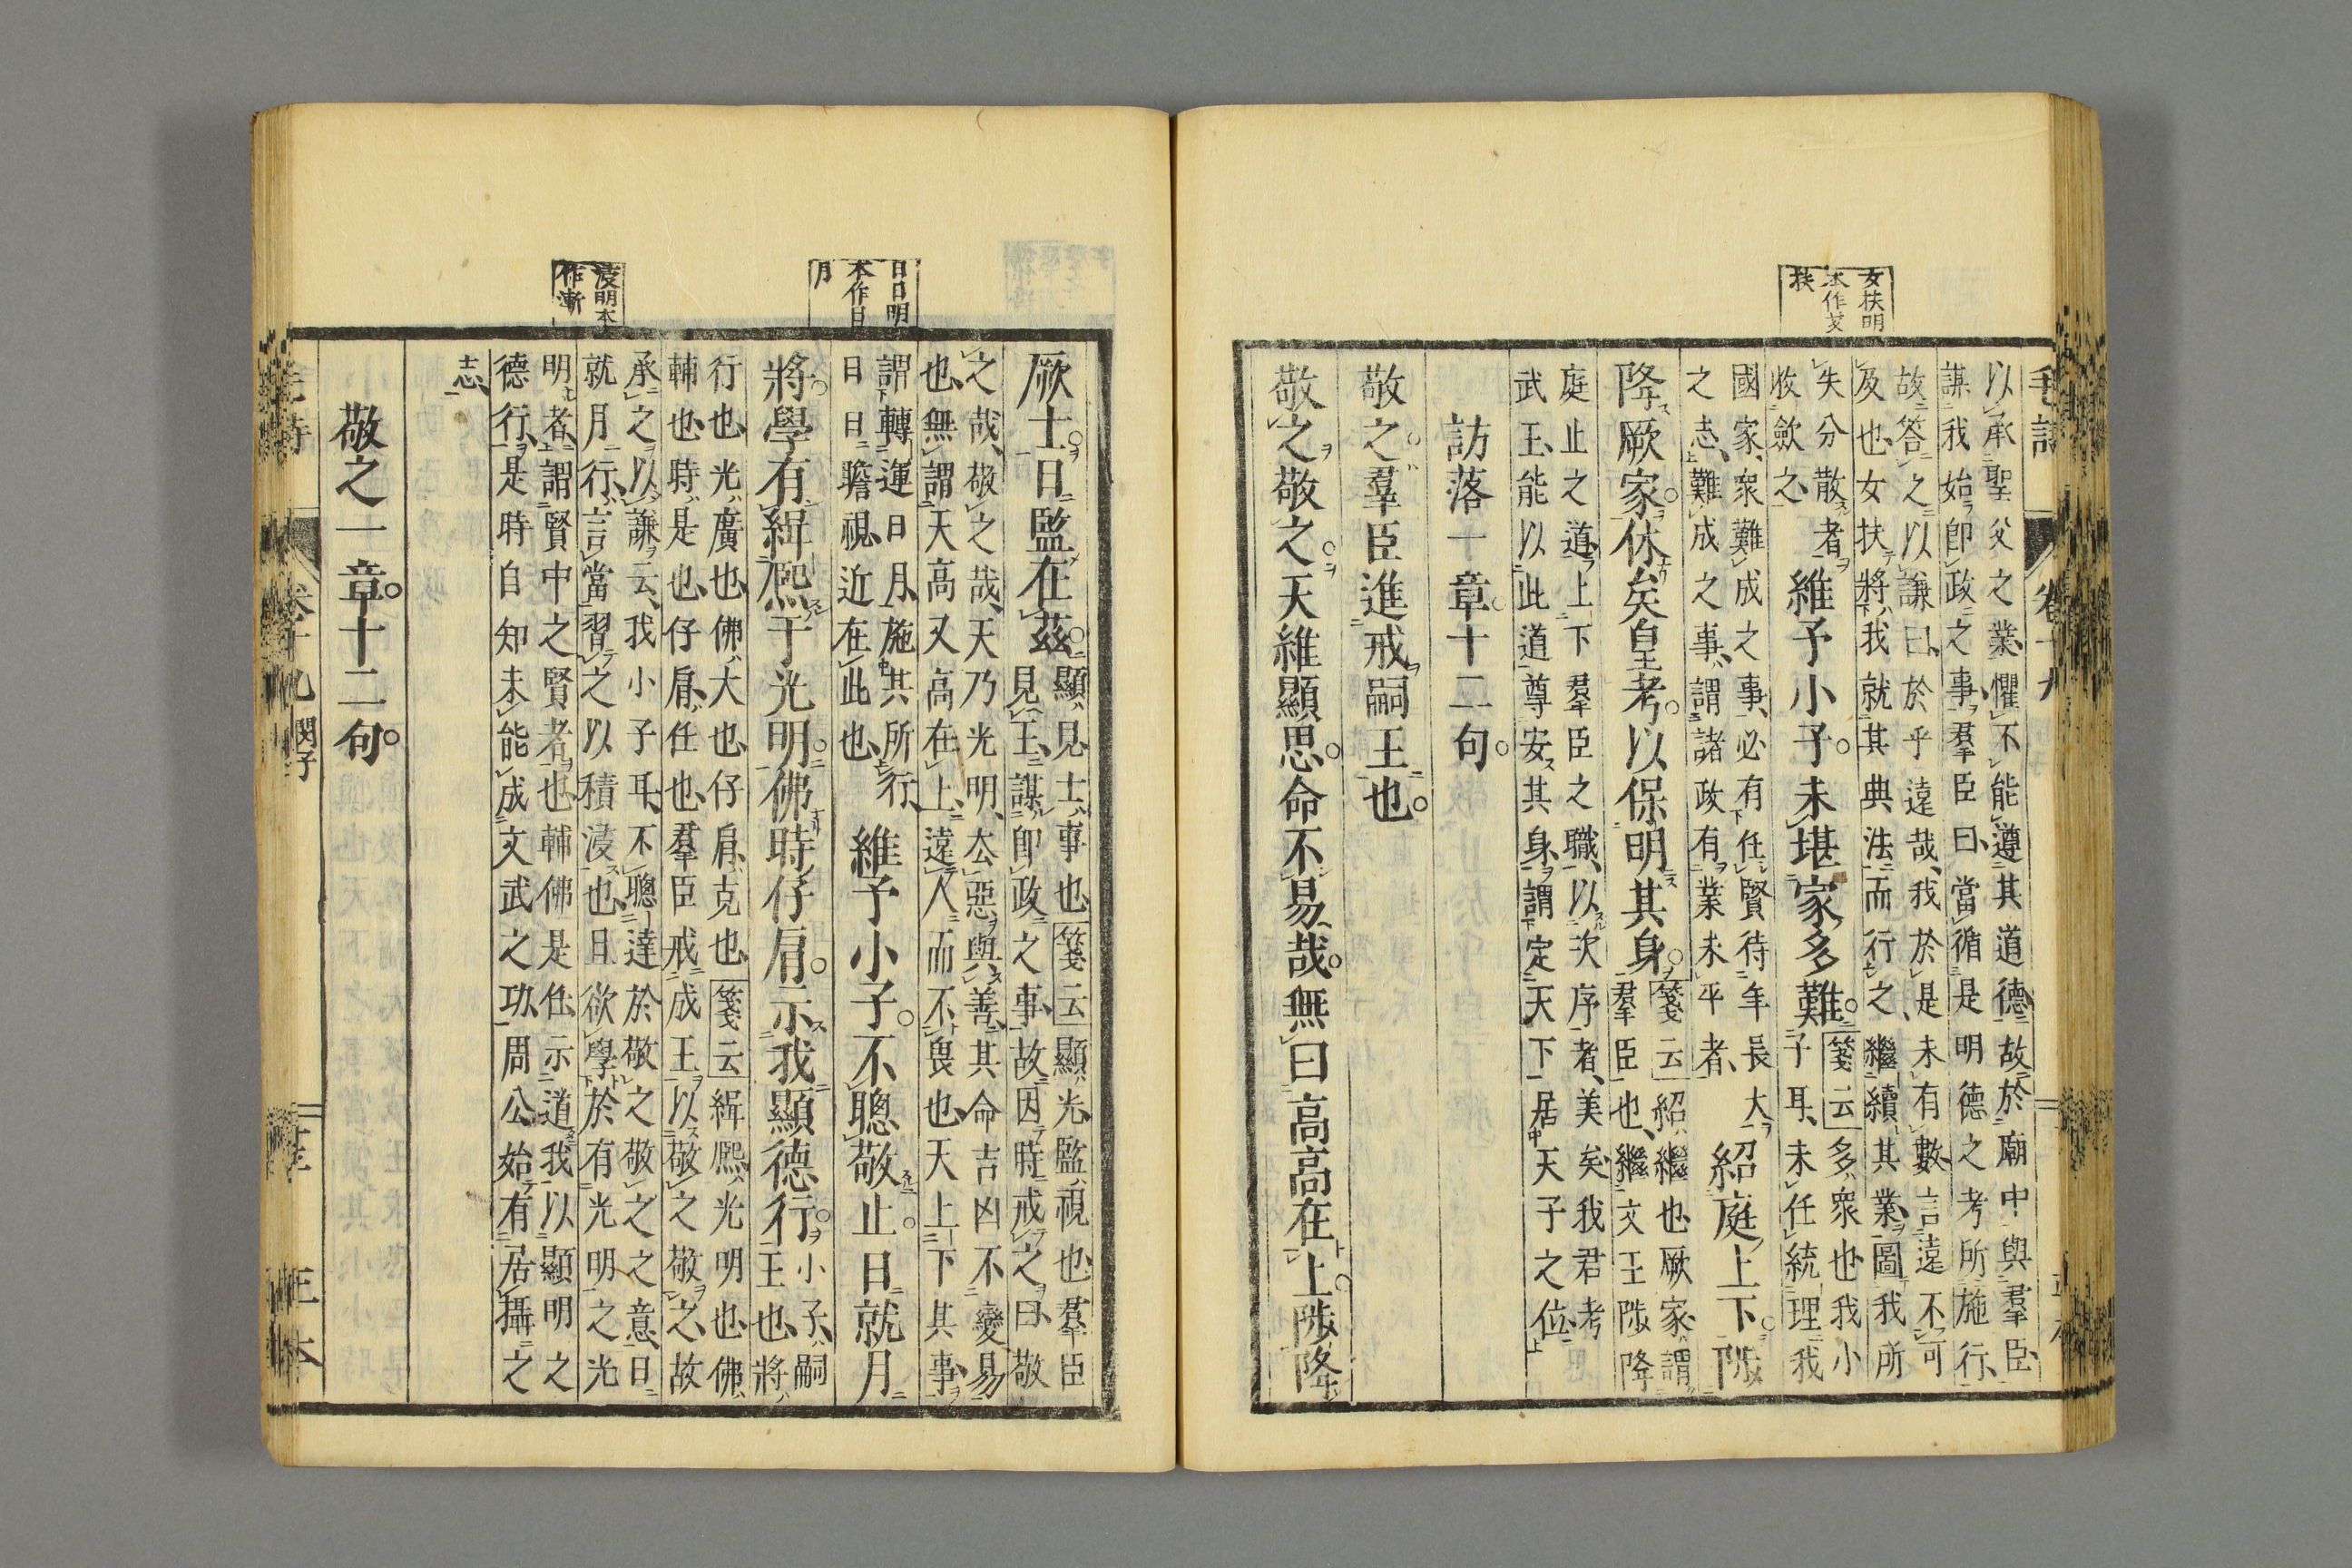 女扶明
本作艾
扶
以承聖父之業懼不能遵其道德故於廟中與羣臣
謀我始卽政之事羣臣曰當循是明德之考所施行
故答之以謙曰於乎遠哉我於是未有數言遠不可
及也女扶將我就其典法而行之繼續其業圖我所
失分散者
收斂之
維予小子未堪家多難
箋云多衆也我小
子耳未任統理我
國家衆難成之事必有任賢待年長大
之志難成之事謂諸政有業未平者
紹庭上下陟
降厥家休矣皇考以保明其身
箋云紹繼也厥家謂
羣臣也繼文王陟降
庭止之道上下羣臣之職以次序者美矣我君考
武王能以此道尊安其身謂定天下居天子之位
訪落一章十二句
敬之羣臣進戒嗣王也
敬之敬之天維顯思命不易哉無曰高高在上陟降
日日明
本作日
月
浸明本
作漸
厥士日監在茲
顯見士事也箋云顯光監視也羣臣
見王謀卽政之事故因時戒之曰敬
之哉敬之哉天乃光明去惡與善其命吉凶不變易
也無謂天高又高在上遠人而不畏也天上下其事
謂轉運日月施其所行
日日瞻視近在此也
維予小子不聰敬止日就月
將學有緝熙于光明佛時仔肩示我顯德行
小子嗣
王也將
行也光廣也佛大也仔肩克也箋云緝熙光明也佛
輔也時是也仔肩任也羣臣戒成王以敬之敬之故
承之以謙云我小子耳不聰達於敬之敬之之意日
就月行言當習之以積浸也且欲學於有光明之光
明者謂賢中之賢者也輔佛是任示道我以顯明之
德行是時自知未能成文武之功周公始有居攝之
志
敬之一章十二句
卷十九 閔子